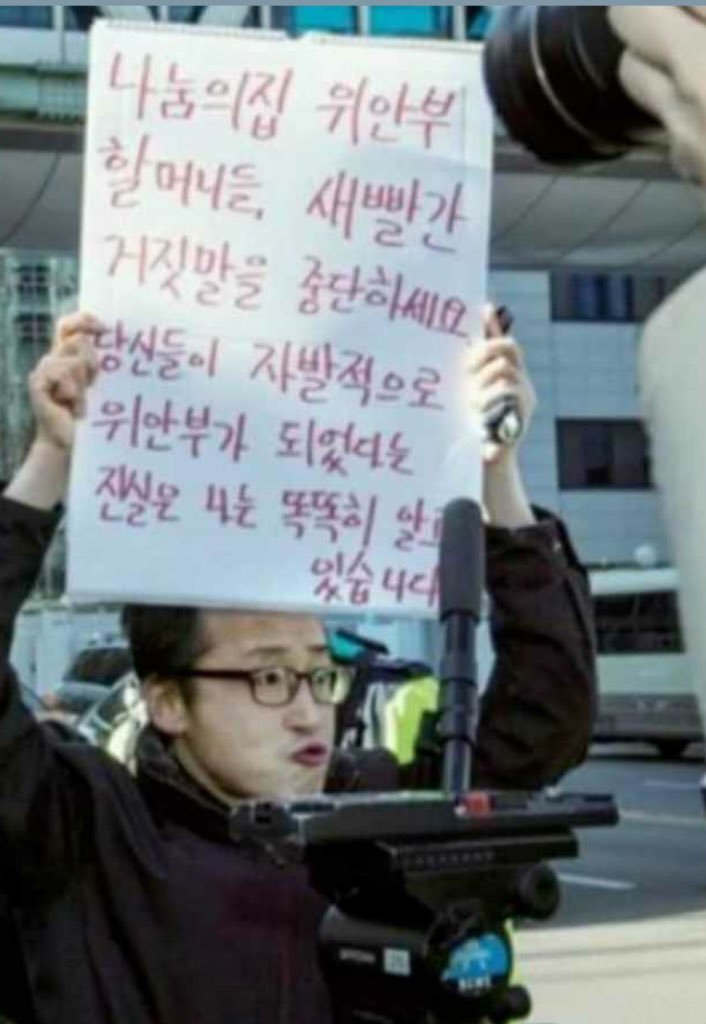 나눔의집 위안부
할머니들, 새빨간
거짓말을 중단하세요
당신들이 자발적으로
위안부가 되었다는
진실은 나는 똑똑히 알고
있습니다